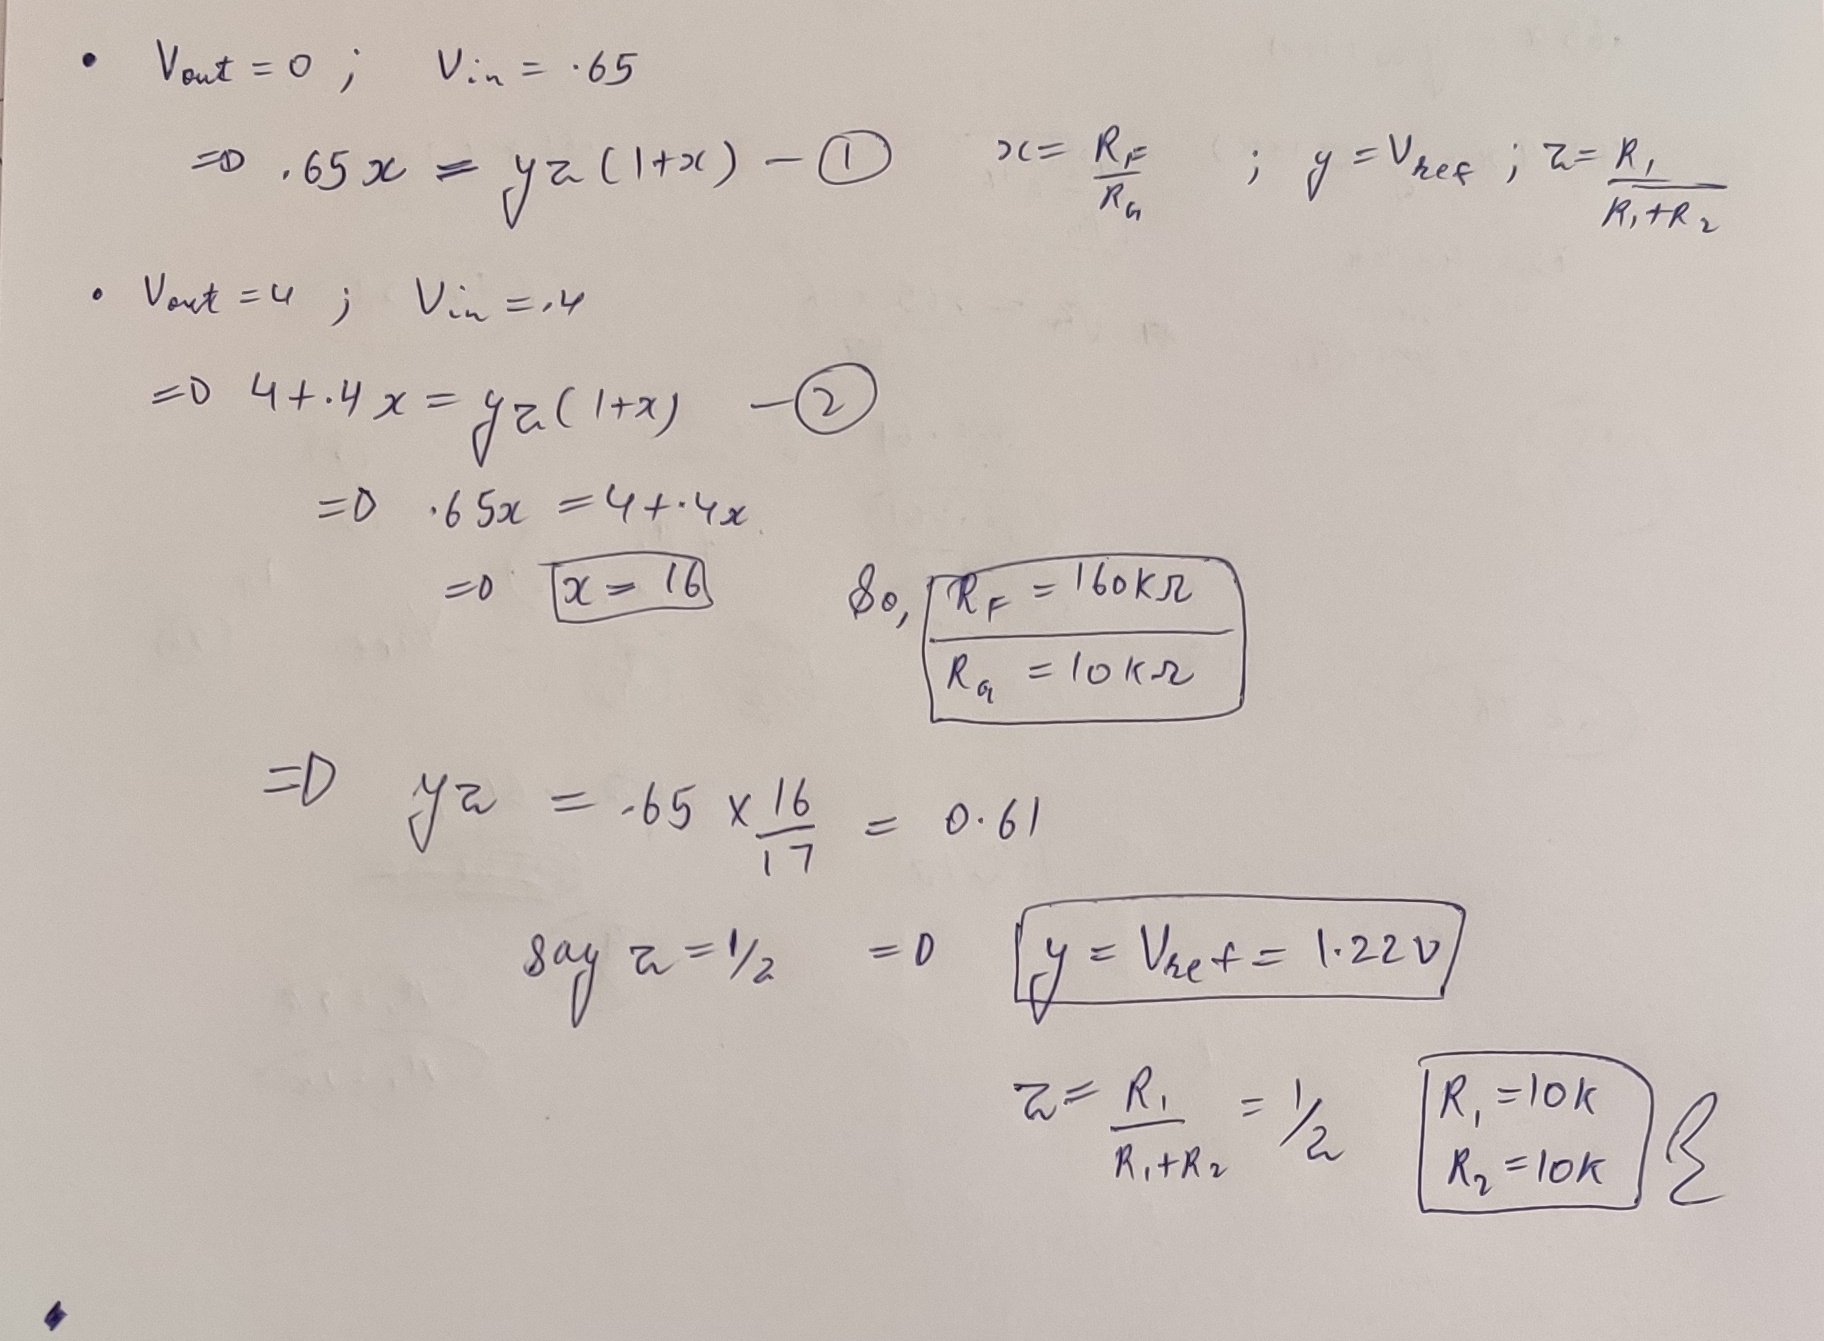 • Vout = 0 ; Vin = .65
⇒ .65x = yz(1+x) — ① x = RF/Ra ; y = Vref ; z = R1/(R1+R2)
• Vout = 4 ; Vin = .4
⇒ 4+.4x = yz(1+x) — ②
⇒ .65x = 4+.4x
⇒ x = 16 So, RF = 160KΩ
Ra = 10KΩ
⇒ yz = .65 x 16/17 = 0.61
say z = 1/2 ⇒ y = Vref = 1.22V
z = R1/(R1+R2) = 1/2 R1 = 10K
R2 = 10K